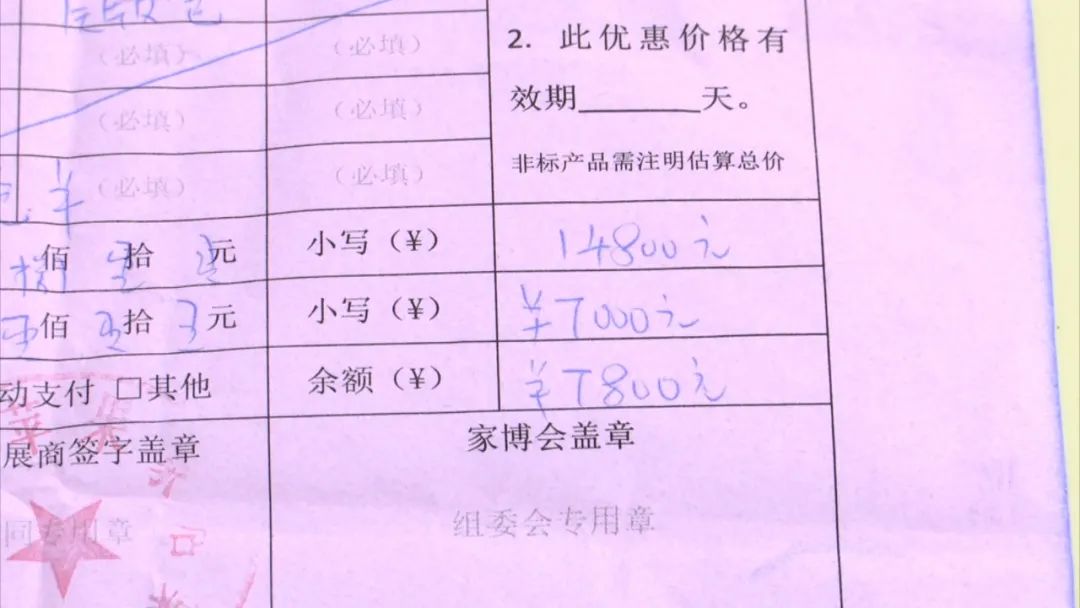 （必填） （必填） 2. 此优惠价格有
（必填） （必填） 效期______天。
（必填） （必填） 非标产品需注明估算总价
¥
佰 拾 元 小写（¥） 14800元
佰 拾 元 小写（¥） ¥7000元
动支付 □其他 余额（¥） ¥7800元
苹果
展商签字盖章 家博会盖章
同专用章 组委会专用章